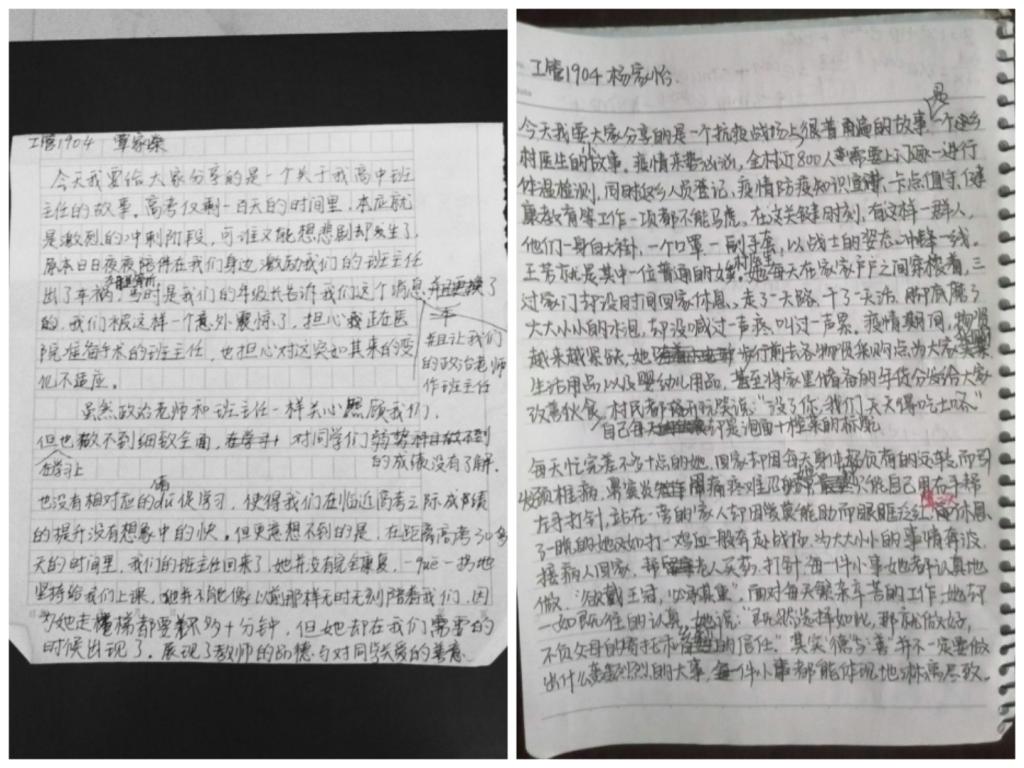 工管1904 覃家荣
今天我要给大家分享的是一个关于我高中班
主任的故事。高考仅剩一百天的时间里,本应就
是激烈的冲刺阶段,可谁又能想悲剧却发生了。
原本日日夜夜陪伴在我们身边激励我们的班主任
出了车祸,当时是我们的年级长告诉我们这个消息
的,我们被这样一个意外震惊了,担心我正在医
并且让我们
院准备手术的班主任,也担心对这突如其来的变
的政治老师
化不适应。
作班主任
虽然政治老师和班主任一样关心照顾我们,
但也做不到细致全面,对同学们
的成绩没有了解,
在学习上
也没有相对应的督促学习,使得我们在临近高考之际成绩
的提升没有想象中的快。但更意想不到的是,在距离高考30多
天的时间里,我们的班主任回来了,她并没有完全康复,一qué一拐地
坚持给我们上课,她并不能像以前那样无时无刻陪着我们,因
为她走楼梯都要差不多十分钟,但她却在我们需要的
时候出现了。展现了教师的品德与对同学关爱的善意。
工管1904 杨家怡
今天我要大家分享的是一个抗疫战场上很普通的故事,一个乡
村医生的故事。疫情来势汹汹,全村近800人需要上门逐一进行
体温检测,同时返乡人员登记,疫情防疫知识宣讲,卡点值守,健
康教育等工作一项都不能马虎。在这关键时刻,有这样一群人,
他们一身白大褂,一个口罩,一副手套,以战士的姿态冲锋一线。
王芳就是其中一位普通的,她每天在家家户户之间穿梭着,三
过家门却没时间回家休息,走了一天路,干了一天活,脚底磨了
大大小小的水泡,却没喊过一声疼,叫过一声累。疫情期间,物资
越来越紧缺,她步行前去各物资采购点为大家采集
生活用品以及婴幼儿用品,甚至将家里储备的年货分发给大家
改善伙食,村民都开玩笑说:“没了你,我们天天喝
自己每天却是泡面十榨菜的标配
每天忙完差不多十点的她,回家却因每天身体超负荷的运转,而引
发颈椎病,疼痛难忍,只能自己用
打针,站在一旁的家人却因爱莫能助而眼眶泛红,休息
了一晚的她又如打一鸡血一般奔赴战场,为大大小小的事情奔波,
接病人回家,帮老人买药,打针,每一件小事她都认真地
做。“欲戴王冠,必承其重”,面对每天繁杂辛苦的工作,她却
一如既往的认真,她说:“既然选择如此,那就做好,
不负父母的嘱托和的信任。”其实德与善并不一定要做
出什么轰轰烈烈的大事,每一件小事都能体现地淋漓尽致。